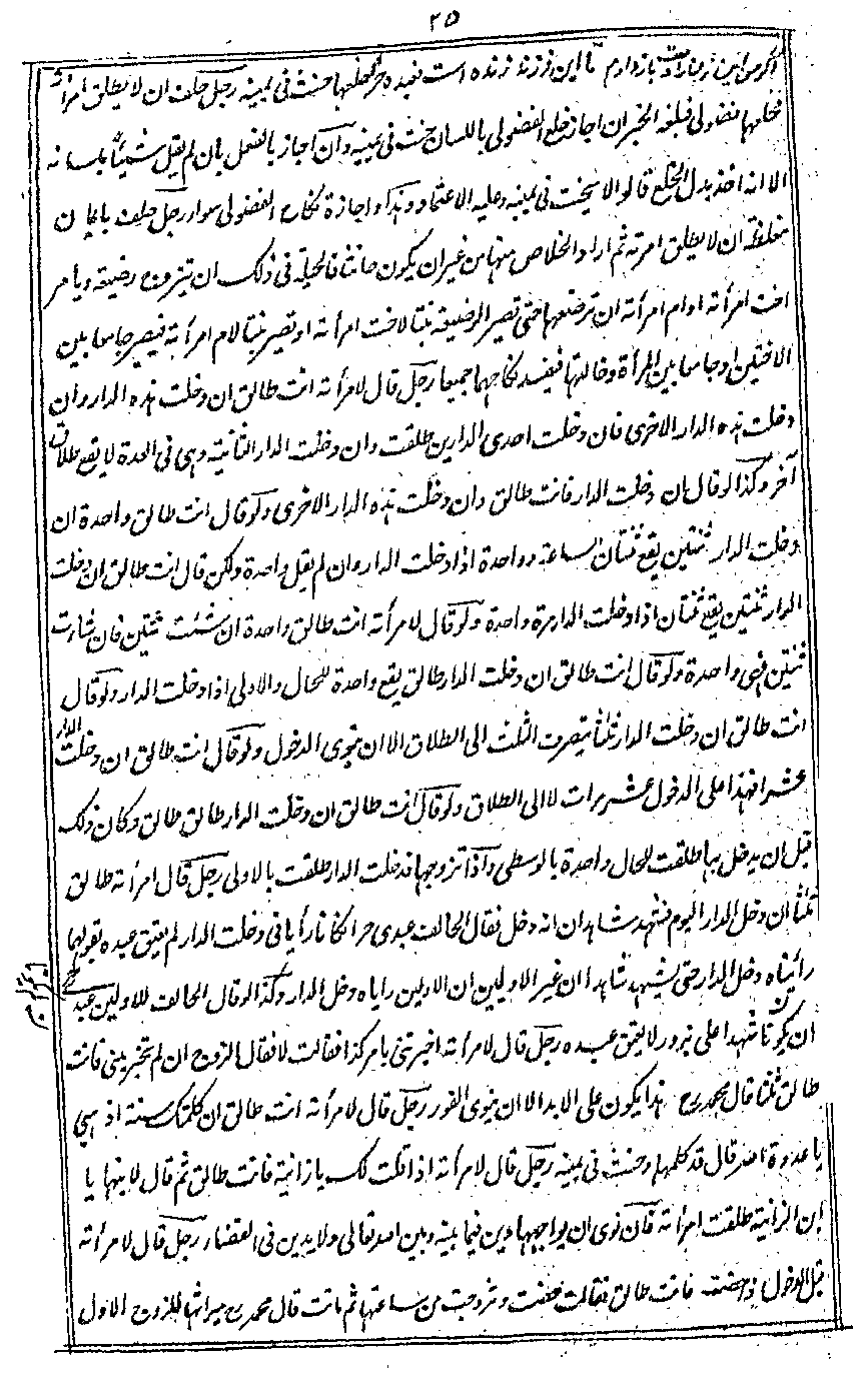 ٢٥
اكر من اين باز دادم تا اين فرزند زنده است فعبده حر حنث في يمينه رجل حلف ان لا يطلق امرأته
فخلعها فضولي فبلغه الخبر ان اجاز خلع الفضولي باللسان حنث في يمينه وان اجاز بالفعل بان لم يقل شيئا بلسانه
الا انه اخذ بدل الخلع قالوا لا يحنث في يمينه وعليه الاعتماد وهذا واجازة نكاح الفضولي سواء رجل حلف بايمان
مغلظة ان لا يطلق امرته ثم اراد الخلاص منها من غير ان يكون حانثا فالحيلة في ذلك ان يتزوج رضيعة ويأمر
اخت امرأته او ام امرأته ان ترضعها حتى تصير الرضيعة بنتا لاخت امرأته او تصير بنتا لام امرأته فيصير جامعا بين
الاختين او جامعا بين المرأة وخالتها فيفسد نكاحهما جميعا رجل قال لامرأته انت طالق ان دخلت هذه الدار وان
دخلت هذه الدار الاخرى فان دخلت احدى الدارين طلقت وان دخلت الدار الثانية وهي في العدة لا يقع طلاق
آخر وكذا لو قال ان دخلت الدار فانت طالق وان دخلت هذه الدار الاخرى ولو قال انت طالق واحدة ان
دخلت الدار ثنتين يقع ثنتان الساعة وواحدة اذا دخلت الدار وان لم يقل واحدة ولكن قال انت طالق ان دخلت
الدار ثنتين يقع ثنتان اذا دخلت الدار مرة واحدة ولو قال لامرأته انت طالق واحدة ان شئت ثنتين فان شاءت
ثنتين فهي واحدة ولو قال انت طالق ان دخلت الدار طالق يقع واحدة للحال والاولى اذا دخلت الدار ولو قال
انت طالق ان دخلت الدار ثلثا ينصرف الثلث الى الطلاق الا ان ينوي الدخول ولو قال انت طالق ان دخلت الدار
عشرا فهذا على الدخول عشر مرات لا الى الطلاق ولو قال انت طالق ان دخلت الدار طالق طالق وكان ذلك
قبل ان يدخل بها طلقت للحال واحدة بالوسطى واذا تزوجها فدخلت الدار طلقت بالاولى رجل قال امرأته طالق
ثلثا ان دخل الدار اليوم فشهد شاهدان انه دخل فقال الحالف عبدي حر ان كانا رأياني دخلت الدار لم يعتق عبده بقولهما
رأيناه دخل الدار حتى يشهد شاهدان غير الاولين ان الاولين راياه دخل الدار وكذا لو قال الحالف للاولين عبد
ان يكونا شهدا علي بزور لا يعتق عبده رجل قال لامرأته اخبرتني بامر كذا فقالت لا فقال الزوج ان لم تخبريني فانت
طالق ثلثا قال محمد رح هذا يكون على الابد الا ان ينوي الفور رجل قال لامرأته انت طالق ان كلمتك سنة اذهبي
يا عدوة الله قال قد كلمها وحنث في يمينه رجل قال لامرأته اذا قلت لك يا زانية فانت طالق ثم قال لابنها يا
ابن الزانية طلقت امرأته فان نوى ان يواجهها دين فيما بينه وبين الله تعالى ولا يدين في القضاء رجل قال لامرأته
قبل الدخول اذا حضت فانت طالق فقالت حضت وتزوجت من ساعتها ثم ماتت قال محمد رح ميراثها للزوج الاول